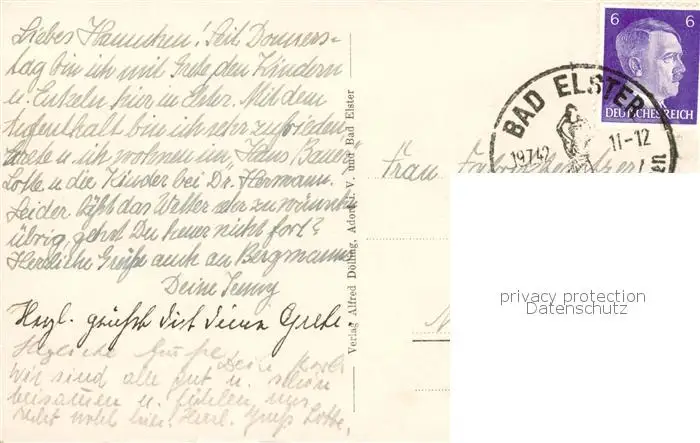 Liebes Hannchen! Seit Donners-
tag bin ich mit Grete, den Kindern
u. Enkeln hier in Elster. Mit dem
Aufenthalt bin ich sehr zufrieden
Grete u. ich wohnen im „Haus Bauer"
Lotte u. die Kinder bei Dr. Hermann.
Leider läßt das Wetter sehr zu wünschen
übrig, gehst Du heuer nicht fort?
Herzliche Grüße auch an Bergmanns
Deine Jenny
Herzl. grüßt dich deine Grete.
Herzliche Grüße Deine
Wir sind alle gut u. schön
beisammen u. fühlen uns
recht wohl hier. Herzl. Gruß Lotte.
Verlag Alfred Dölling, Adorf i. V. und Bad Elster
6 6
DEUTSCHES REICH
BAD ELSTER
19.7.42 11-12
Frau Fabrikbesitzer
privacy protection
Datenschutz